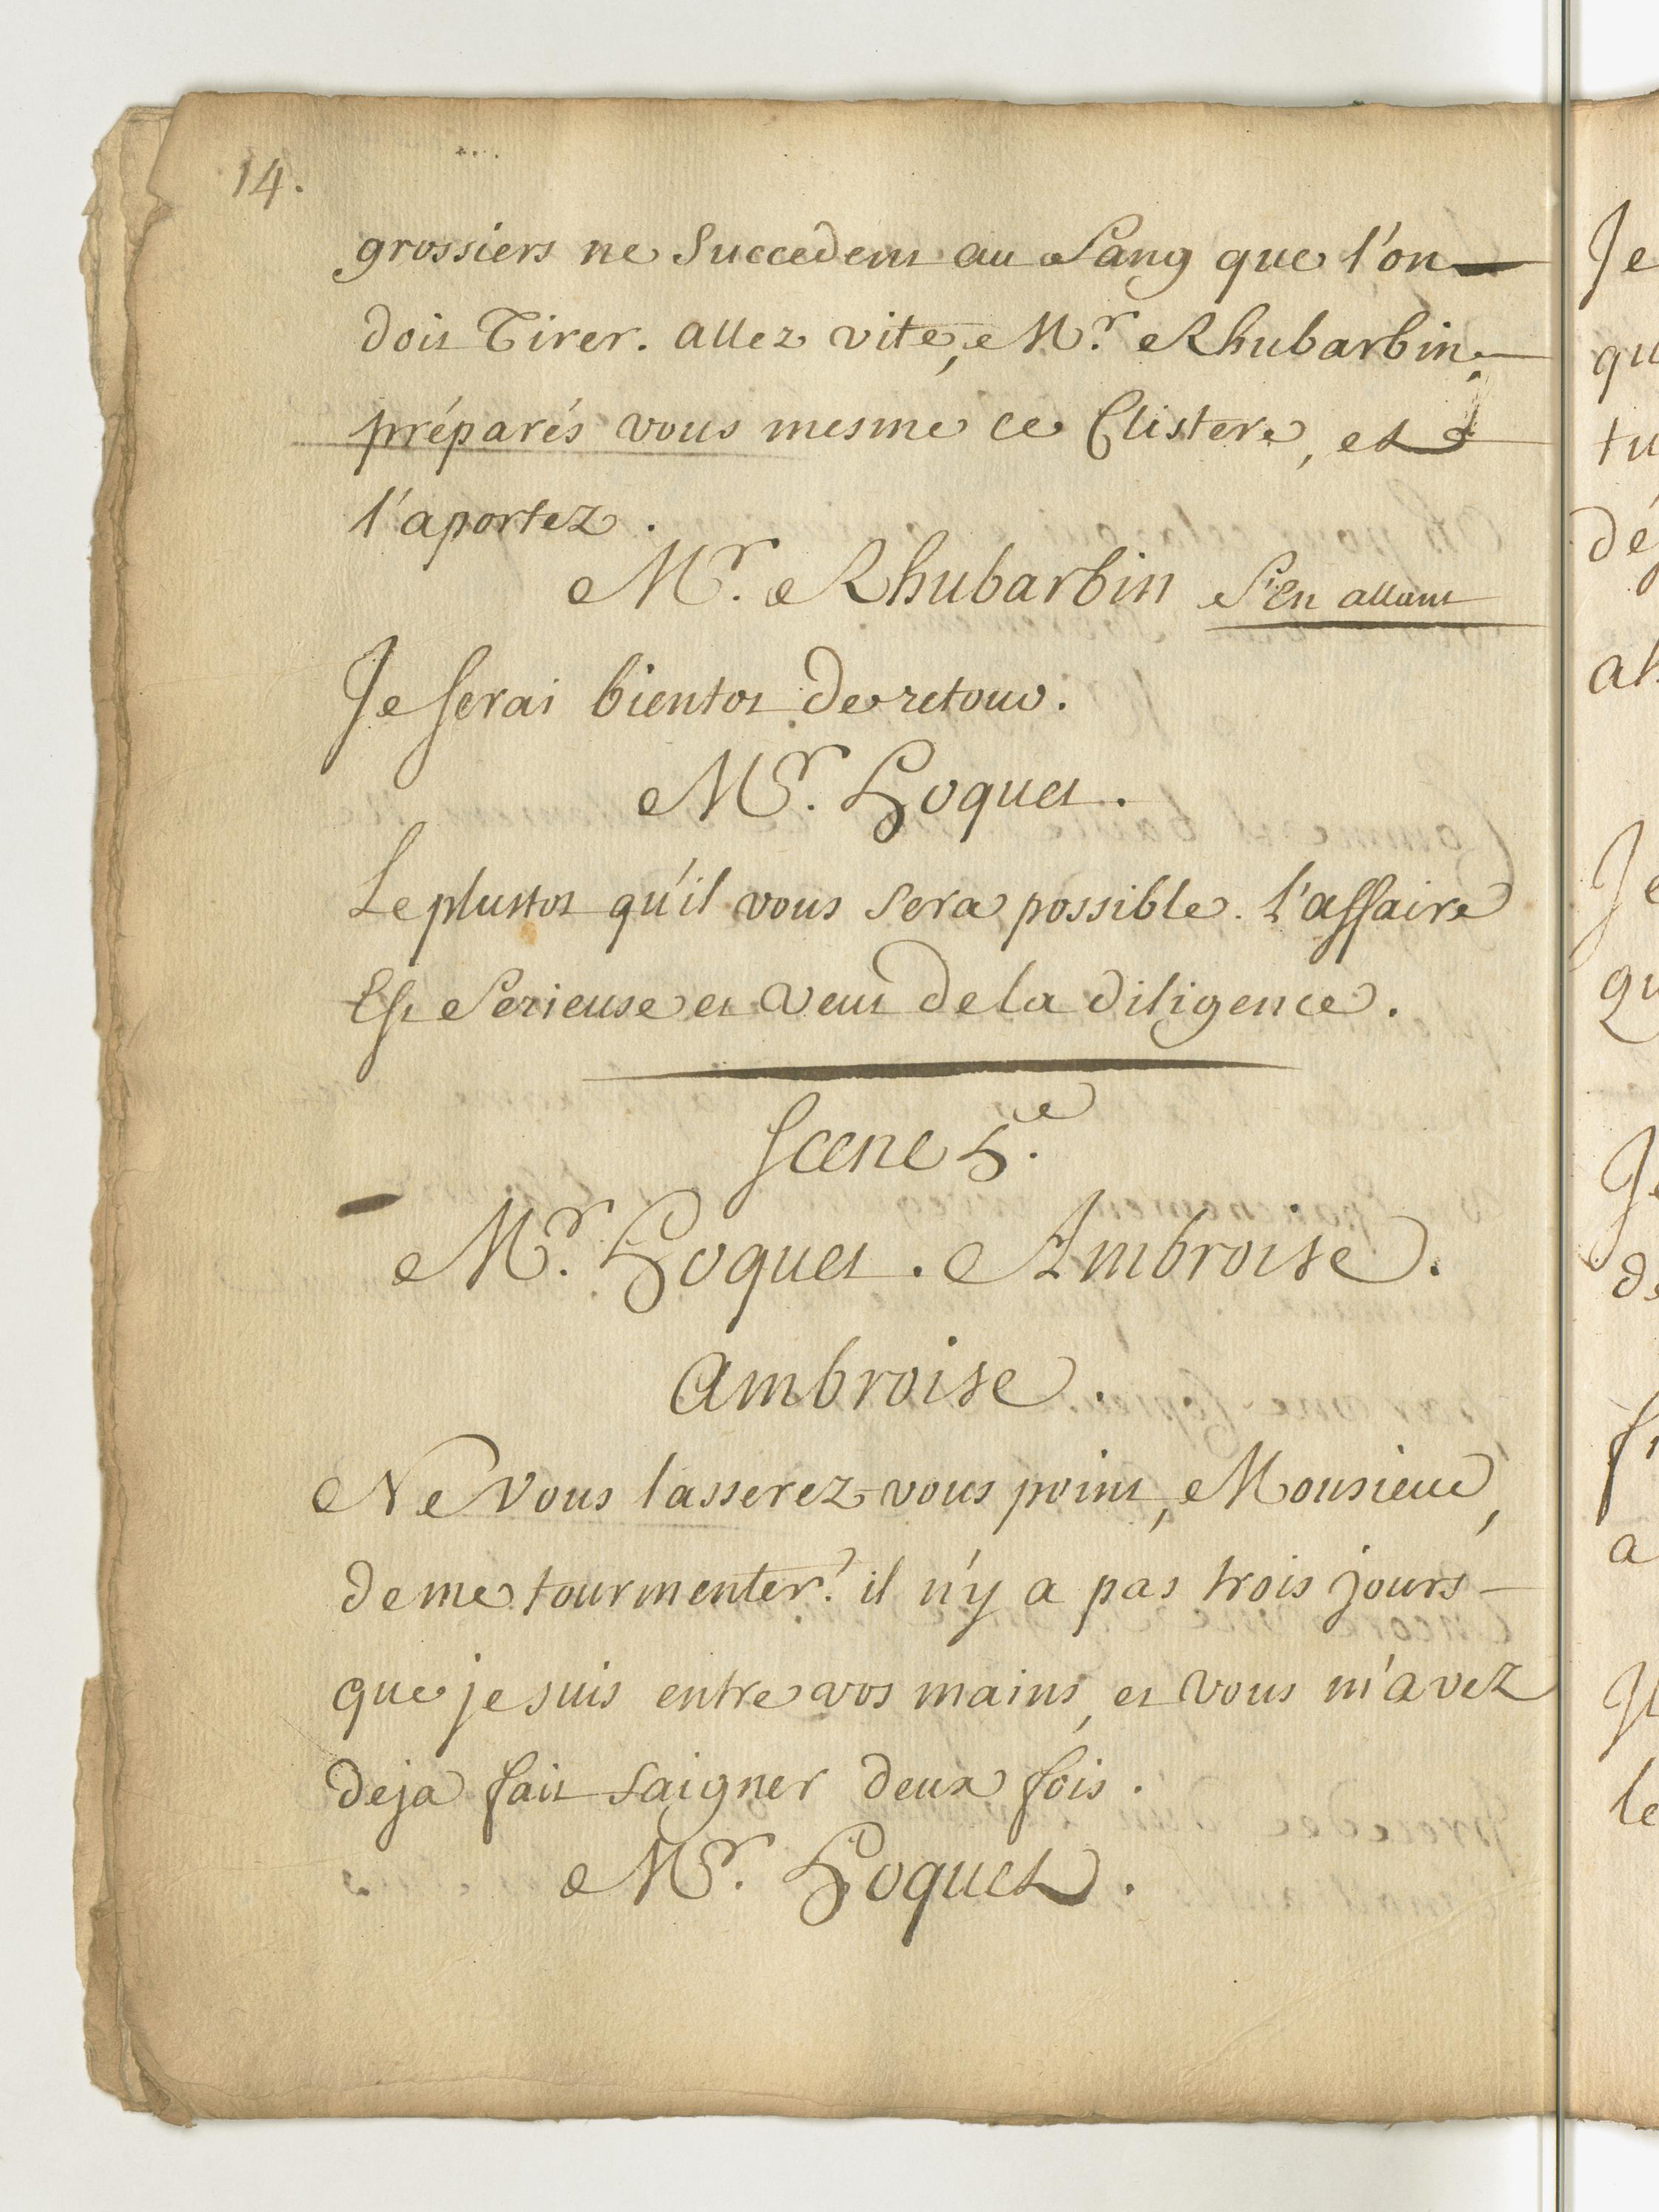 14.
grossiers ne Succedent au Sang que l'on
doit Tirer. allez vite, Mr. Rhubarbin,
préparés vous mesme ce Clistere, et
l'aportez.
Mr. Rhubarbin S'en allant
Je serai bientot de retour.
Mr. Hoquet.
Le plustot qu'il vous sera possible. l'affaire
Est Serieuse et veut de la diligence.
Scene 5.e
Mr. Hoquet. Ambroise.
Ambroise.
Ne Vous lasserez-vous point, Monsieur,
de me tourmenter? il n'y a pas trois jours
que je suis entre vos mains, et vous m'avez
deja fait saigner deux fois.
Mr. Hoquet.
Je
qu
tu
dé
ah
Je
qu
Je
de
a
le